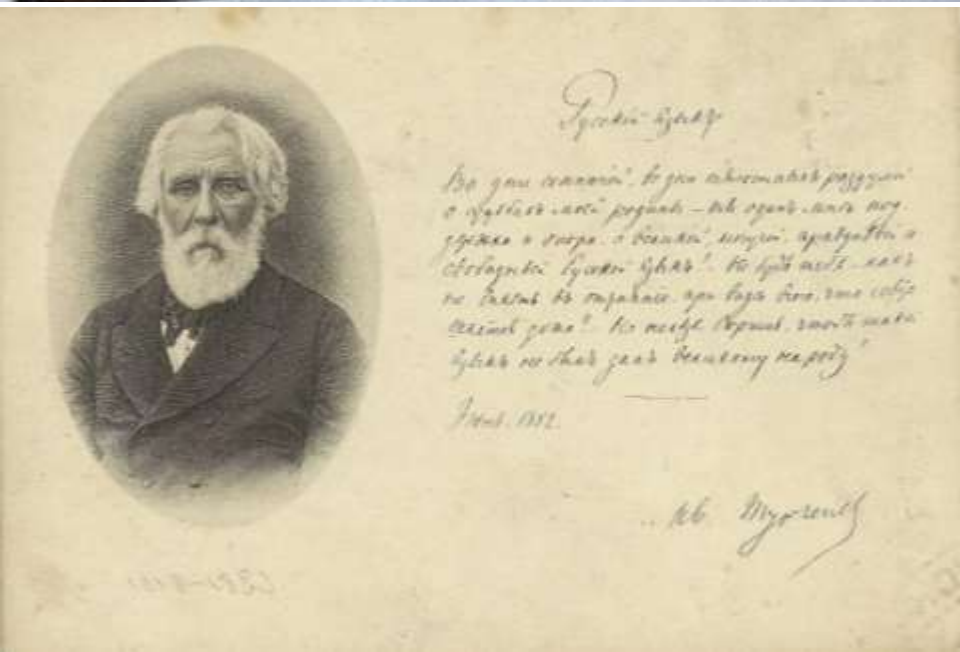 Русскій языкъ
Во дни сомнѣній, во дни тягостныхъ раздумій
о судьбахъ моей родины – ты одинъ мнѣ под-
держка и опора, о великій, могучій, правдивый и
свободный Русскій языкъ! Не будь тебя – какъ
не впасть въ отчаяніе, при видѣ всего, что совер-
шается дома? Но нельзя вѣрить, чтобы такой
языкъ не былъ данъ великому народу!
Июнь. 1882.
Ив. Тургеневъ